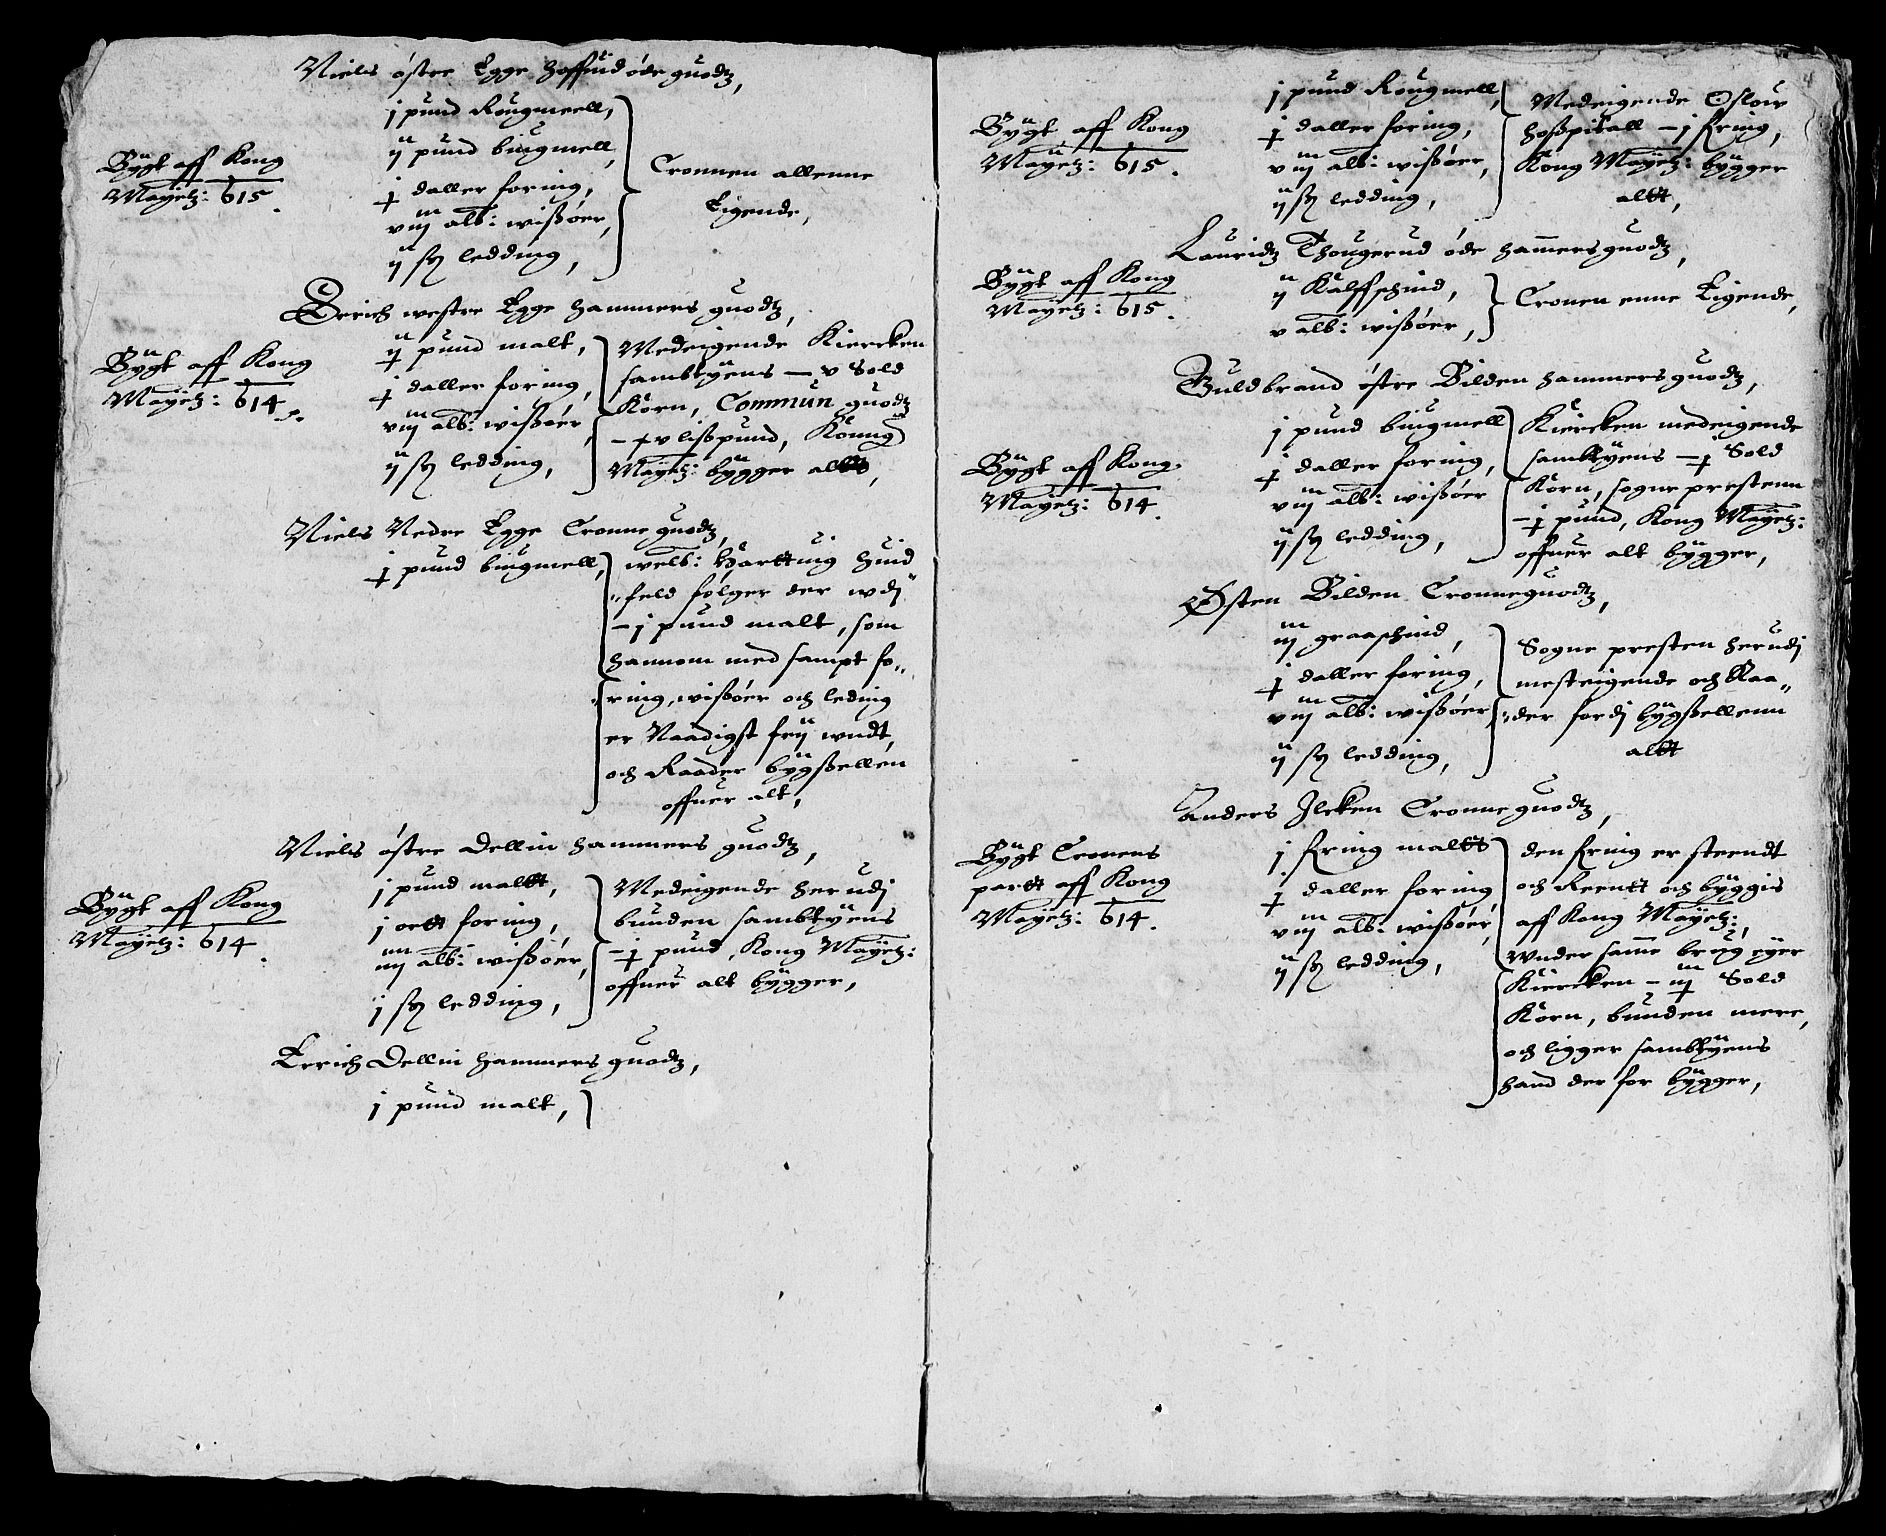 Niels østre Egge hoffuid øde guodtz,
Bÿgt aff Kong
Mayetz: 615.
j pund Rougmeell,
ij pund biugmell,
j daller foring,
viij alb: wissøer,
ij sk ledding,
Cronnen allenne
Eigende,
Erich westre Egge hammers guodtz,
Bÿgt aff Kong
Mayetz: 614.
ij pund malt,
j daller foring,
viij alb: wissøer,
ij sk ledding,
Medeigende Kiercken
sambtÿens – v Sold
Korn, Commun guodtz
– v lispund, Konng
Mayetz: bÿgger altt,
Niels Nedre Egge Cronne guodtz,
j pund biugmell,
welb: Harttuig Huid
feld følger der wdj
– j pund malt, som
hannom med sampt fo„
ring, wissøer och leding
er Naadigst frij wndt,
och Raader bÿgsellen
offuer alt,
Niels østre Dellin hammers guodtz,
Bÿgt aff Kong
Mayetz: 614.
j pund malltt,
j ortt foring,
iiij alb: wissøer,
j sk ledding,
Medeigende herudj
bunden sambtÿens
– j pund, Kong Mayetz:
offuer alt bÿgger,
Erich Dellin hammers guodtz,
j pund malt,
4
Bÿgt aff Kong
Mayetz: 615.
j pund Rougmell,
j daller foring,
viij alb: wissøer,
ij sk ledding,
Medeigende Oslow
hospitall – j fring,
Kong Mayetz: bÿgger
altt,
Lauridz Thougerud øde hammers guodtz,
Bÿgt aff Kong
Mayetz: 615.
ij Kalffschind,
v alb: wissøer,
Cronen enne Eigende,
Guldbrand østre Bilden hammers guodtz,
Bÿgt aff Kong
Mayetz: 614.
j pund biugmell
j daller foring,
viij alb: wissøer
ij sk ledding,
Kiercken medeigende
sambtÿens – j Sold
Korn, sogne prestenn
– j pund, Kong Mayetz:
offuer alt bÿgger,
Østen Bilden Cronne guodtz,
iij graaschind,
j daller foring,
viij alb: wissøer
ij sk ledding,
Sogne presten herudj
mesteigende och Raa„
der fordj bÿgsellenn
altt
Anders Ilcken Cronne guodtz,
Bÿgt Cronens
partt aff Kong
Mayetz: 614.
j fring maltt
j daller foring,
viij alb: wissøer,
ij sk ledding,
den fring er steendt
och Reentt och bÿggis
aff Kong Mayetz:,
Wnder samme brug eyer
Kiercken – iij Sold
Korn, bunden mere,
och ligger sambtÿens
hand der for bÿgger,